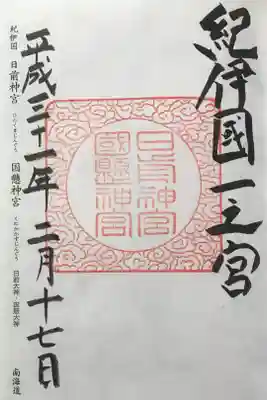 紀伊國一之宮
日前神宮
國懸神宮
平成三十一年二月十七日
紀伊国 日前神宮 国懸神宮 日前大神・国懸大神 南海道
ひのくまじんぐう くにかかすじんぐう